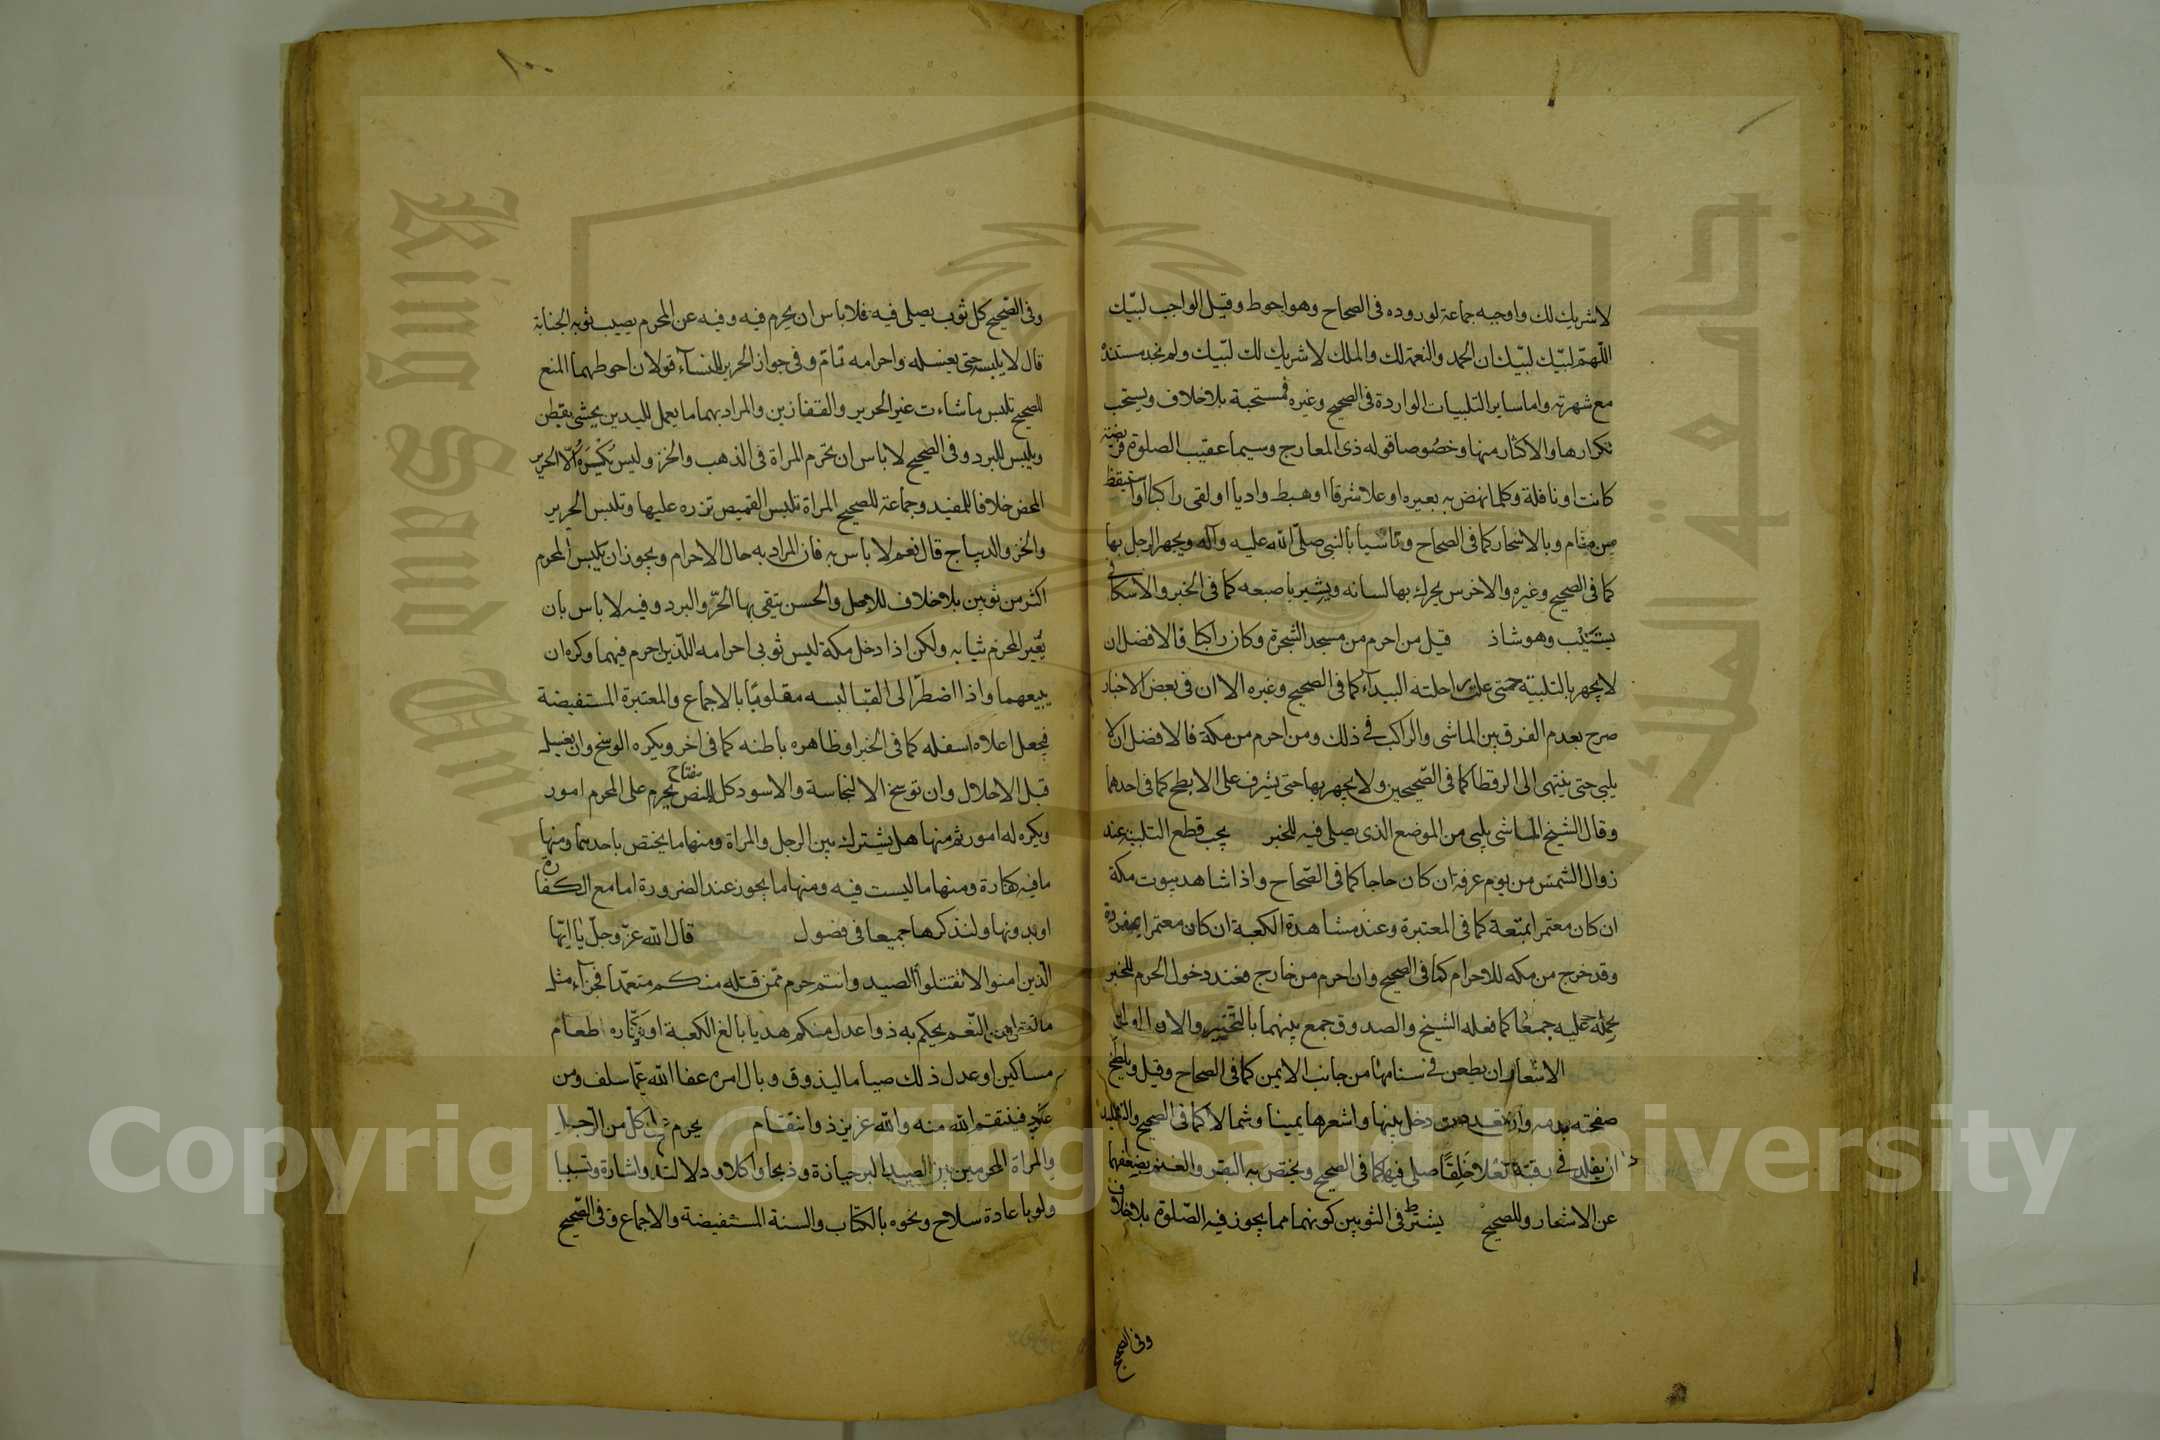 لا شريك لك واوجبه جماعة لوروده فى الصحاح وهو احوط وقيل الواجب لبّيك
اللّهمّ لبّيك لبّيك ان الحمد والنعمة لك والملك لا شريك لك لبّيك ولم نجد مستنده
مع شهرته واما ساير التلبيات الواردة فى الصحيح وغيره فمستحبة بلا خلاف ويستحب
تكرارها والاكثار منها وخصوصا قوله ذى المعارج وسيما عقيب الصلوة فريضة
كانت او نافلة وكلما نهض به بعيره او علا شرفا او هبط واديا او لقى راكبا او استيقظ
من منام وبالاسحار كما فى الصحاح وتاسّيا بالنبى صلّى الله عليه وآله ويجهر الرجل بها
كما فى الصحيح وغيره والاخرس يحرك بها لسانه ويشير باصبعه كما فى الخبر والاسكافى
يستنيب وهو شاذ قيل من احرم من مسجد الشجرة وكان راكبا فالافضل ان
لا يجهر بالتلبية حتى علت راحلته البيدآء كما فى الصحيح وغيره الا ان فى بعض الاخبار
صرح بعدم الفرق بين الماشى والراكب فى ذلك ومن احرم من مكة فالافضل ان لا
يلبى حتى ينتهى الى الرقطا كما فى الصّحيحين ولا يجهر بها حتى يشرف على الابطح كما فى احدهما
وقال الشيخ الماشى يلبى من الموضع الذى يصلى فيه للخبر يجب قطع التلبية عند
زوال الشمس من يوم عرفة ان كان حاجا كما فى الصّحاح واذا شاهد بيوت مكة
ان كان معتمرا بمتعة كما فى المعتبرة وعند مشاهدة الكعبة ان كان معتمرا بمفردة
وقد خرج من مكه للاحرام كما فى الصحيح وان احرم من خارج فعند دخول الحرم للخبر
عليه جمعا كما فعله الشيخ والصدوق جمع بينهما بالتخيير والاول اولى
الاشعار ان يطعن فى سنامها من جانب الايمن كما فى الصحاح وقيل ويلطخ
صفحته بدمه وان دخل بينها واشعرها يمينا وشمالا كما فى الصحيح والتقليد
ان يقلد فى رقبته نعلا خَلِقًا صلى فيها كما فى الصحيح ويختص به البقر والغنم لضعفهما
عن الاشعار وللصحيح يشترط فى الثوبين كونهما مما يجوز فيه الصّلوة بلا خلاف
وفى الصحيح
وفى الصّحيح كل ثوب يصلى فيه فلا باس ان يحرم فيه وفيه عن المحرم يصيب ثوبه الجنابة
قال لا يلبسه حتى يغسله واحرامه تامّ وفى جواز الحرير للنسآء قولان احوطهما المنع
للصحيح تلبس ما شاءت غير الحرير والقفازين والمراد بهما ما يعمل لليدين يحشى بقطن
ويلبس للبرد وفى الصحيح لا باس ان تحرم المراة فى الذهب والخز وليس يكره الّا الحرير
المحض خلافا للمفيد وجماعة للصحيح المراة تلبس القميص تزره عليها وتلبس الحرير
والخز والديباج قال نعم لا باس به فان المراد به حال الاحرام ويجوز ان يلبس المحرم
اكثر من ثوبين بلا خلاف للاصل والحسن يتقى بها الحرّ والبرد وفيه لا باس بان
يُغيّر المحرم ثيابه ولكن اذا دخل مكة لبس ثوبى احرامه اللّذين احرم فيهما وكره ان
يبيعهما واذا اضطرّ الى القبا لبسه مقلوبًا بالاجماع والمعتبرة المستفيضة
فيجعل اعلاه اسفله كما فى الخبر او ظاهره باطنه كما فى اخر ويكره الوسخ وان يغسله
قبل الاحلال وان توسخ الا لنجاسة والاسود كل للنص مفتاح يحرم على المحرم امور
ويكره له امور ثم منها هل يشترك بين الرجل والمراة ومنها ما يختص باحدهما ومنها
ما فيه كفارة ومنها ما ليست فيه ومنها ما يجوز عند الضرورة اما مع الكفارة
او بدونها ولنذكرها جميعا فى فصول قال الله عزّ وجلّ يا ايّها
الّذين امنوا لا تقتلوا الصيد وانتم حرم فمن قتله منكم متعمّدا فجزآء مثل
ما قتل من النّعم يحكم به ذوا عدل منكم هديا بالغ الكعبة او كفّاره طعام
مساكين او عدل ذلك صياما ليذوق وبال امره عفا الله عمّا سلف ومن
عاد فينتقم الله منه والله عزيز ذو انتقام يحرم على كل من الرّجل
والمراة المحرمين الصيد البر حيازة وذبحا واكلا ودلالة واشارة وتسبيبا
ولو باعادة سلاح ونحوه بالكتاب والسنة المستفيضة والاجماع وفى الصّحيح
King Saud University
جامعة الملك
Copyright © King Saud University